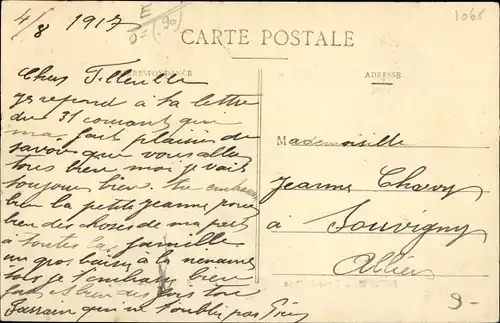 4/8 1917
(90)
1068
CARTE POSTALE
CORRESPONDANCE
ADRESSE
Cher Filleulle
je repond a ta lettre
du 31 courant qui
ma fait plaisir de
savoir que vous allez
tous bien moi je vais
toujours bien tu embrasse
bien la petite jeanne pour
bien des choses de ma part
a toutes la famille
un gros baiser a la nenaine
toi je t'embrasse bien
fort bien des fois ton
Parrain qui ne t'oublie pas
Mademoiselle
Jeanne Charvy
à Souvigny
Allier
9-